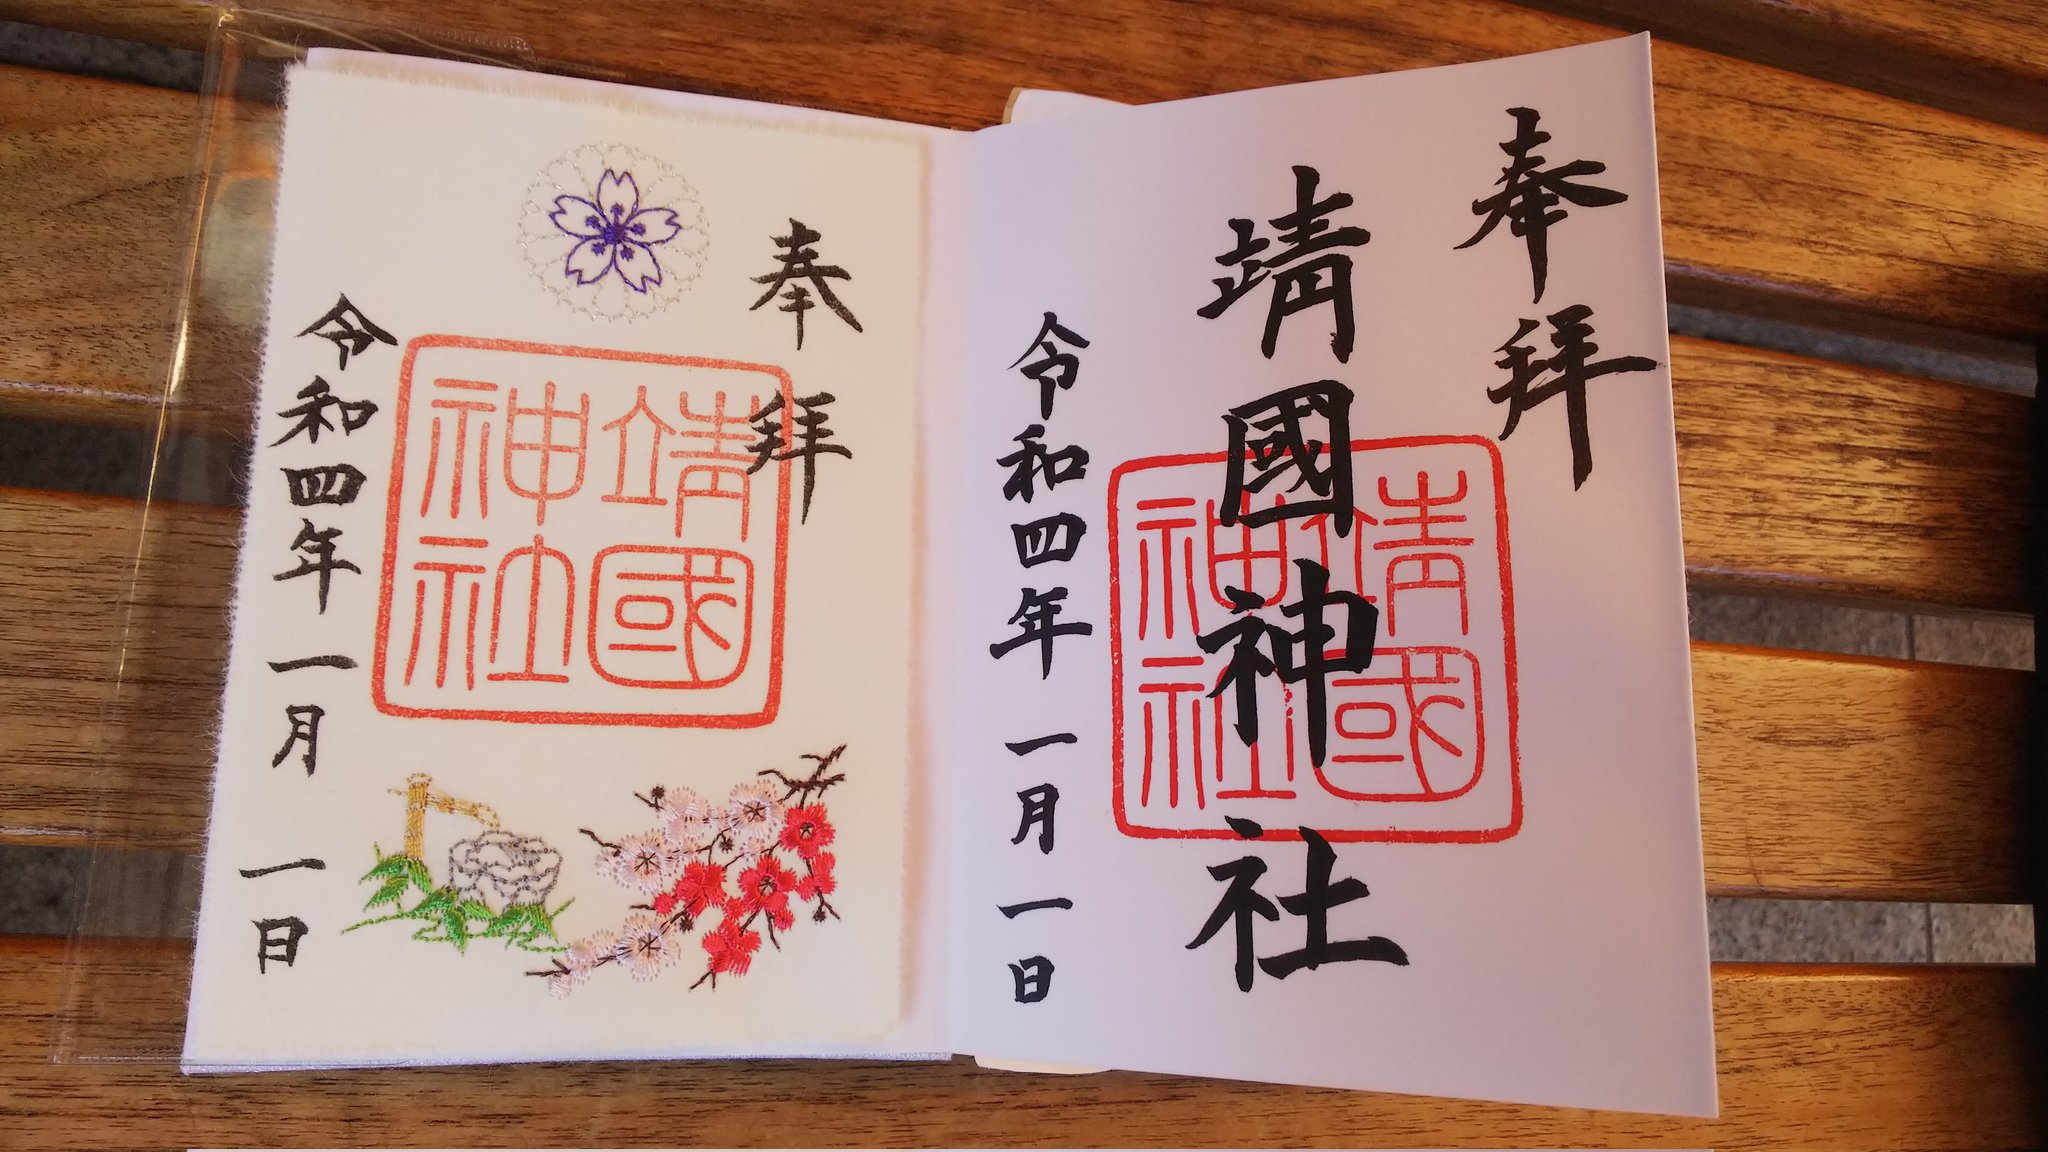 奉拝
靖國神社
靖國神社
令和四年一月一日
奉拝
靖國神社
令和四年一月一日